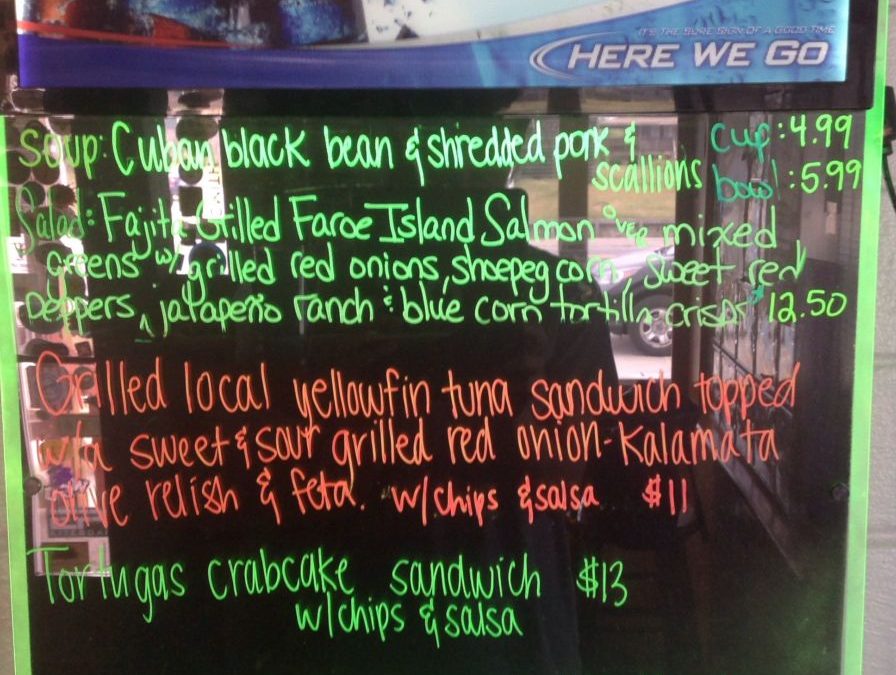 IT'S THE SURE SIGN OF A GOOD TIME
HERE WE GO
Soup: Cuban black bean & shredded pork & cup: 4.99
scallions bowl: 5.99
Salad: Fajita Grilled Faroe Island Salmon over mixed
greens w/ grilled red onions, shoepeg corn, sweet red
peppers, jalapeño ranch & blue corn tortilla crisps 12.50
Grilled local yellowfin tuna sandwich topped
w/a sweet & sour grilled red onion-Kalamata
olive relish & feta. w/chips & salsa $11
Tortugas crabcake sandwich $13
w/chips & salsa